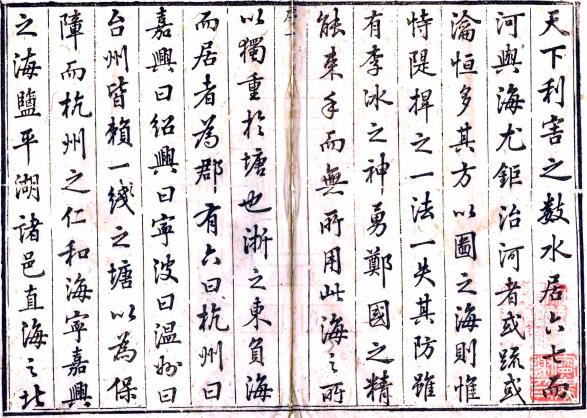 天下利害之数水居六七而
河與海尤鉅治河者或疏或
瀹恒多其方以圖之海則惟
恃隄捍之一法一失其防雖
有李冰之神勇鄭國之精
能束手而無所用此海之所
以獨重於塘也浙之東負海
而居者為郡有六曰杭州曰
嘉興曰紹興曰寧波曰温州曰
台州皆賴一綫之塘以為保
障而杭州之仁和海寧嘉興
之海鹽平湖諸邑直海之北
序一